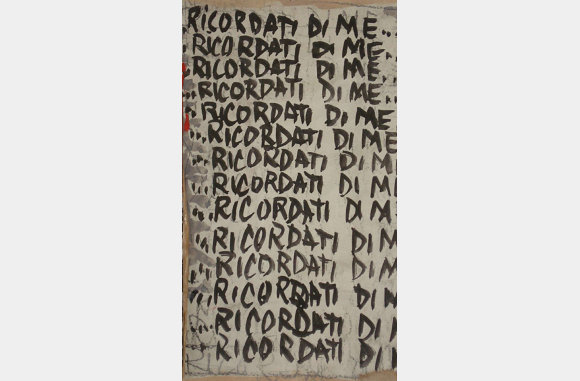 RICORDATI DI ME...
..RICORDATI DI ME..
..RICORDATI DI ME..
...RICORDATI DI ME..
...RICORDATI DI ME
...RICORDATI DI ME
...RICORDATI DI ME
...RICORDATI DI M
...RICORDATI DI M
...RICORDATI DI M
...RICORDATI DI M
...RICORDATI DI M
...RICORDATI DI
RICORDATI DI